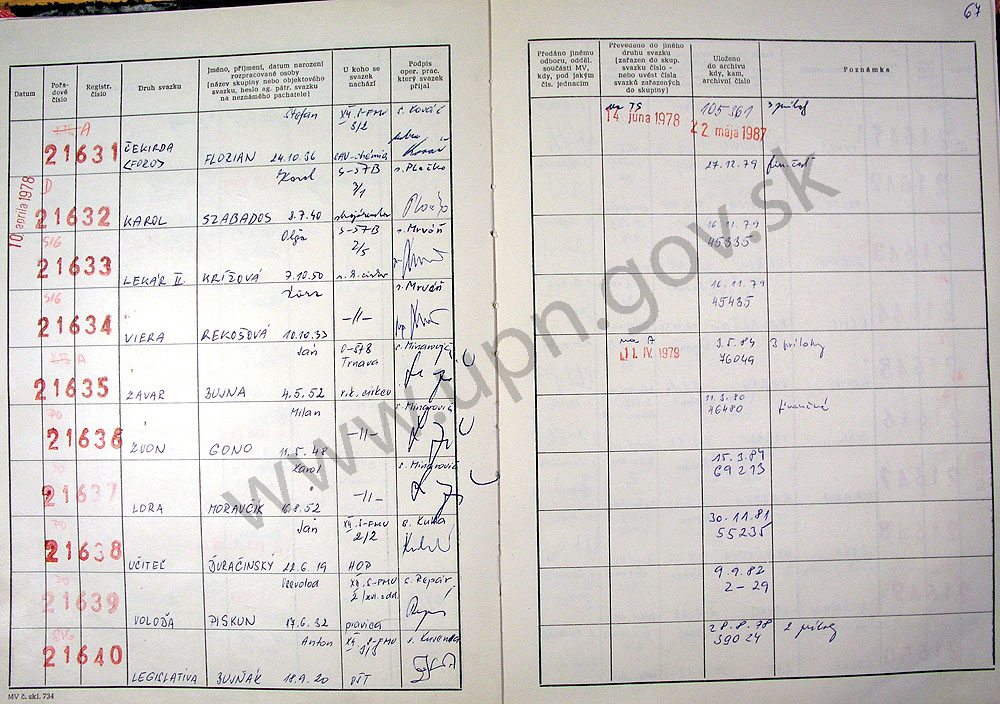 67
Datum
Pořadové číslo
Registr. číslo
Druh svazku
Jméno, příjmení, datum narození
rozpracované osoby
(název skupiny nebo objektového
svazku, heslo ag. pátr. svazku
na neznámého pachatele)
U koho se
svazek
nachází
Podpis
oper. prac.
který svazek
přijal
Předáno jinému
odboru, odděl.
součásti MV,
kdy, pod jakým
čís. jednacím
Převedeno do jiného
druhu svazku
(zařazen do skup.
svazku číslo -
nebo uvést čísla
svazků zařazených
do skupiny)
Uloženo
do archivu
kdy, kam,
archivní číslo
Poznámka
10 aprila 1978
A
21631
ČEKIRDA
Štefan
FLORIAN 24.10.36
XII. S-FMV
3/2
SAV-chémia
s. Kováč
na TS
14. júna 1978
105361
22. mája 1987
3 prílohy
D
21632
KAROL
Karol
SZABADOS 8.7.40
S-ŠTB
3/1
27.12.79
SIG
21633
LEKÁR II.
Olga
KRÍŽOVÁ 7.10.50
S-ŠTB
2/5
s. Mrváň
16.11.79
45335
SIG
21634
VIERA
REKOŠOVÁ 10.10.33
-11-
s. Mrváň
16.11.79
45435
A
21635
ZAVAR
Ján
BUJNA 4.5.52
O-ŠTB
Trnava
r.k. cirkev
s. Minarovič
na A
11. IV. 1979
3.5.84
76049
3 prílohy
PO
21636
ZVON
Milan
GONO 11.5.48
-11-
s. Minarovič
11.3.80
46480
finančná
PO
21637
LORA
Karol
MORAVČÍK 1.8.52
-11-
s. Minarovič
15.3.84
69213
PO
21638
UČITEĽ
Ján
ĎURAČINSKÝ 22.6.19
XII. S-FMV
2/2
HOP
s. Kukla
30.11.81
55235
PO
21639
VOLOĎA
Vsevolod
PISKUN 17.6.32
XII. S-FMV
pravica
s. Repár
9.9.82
2-29
SIG
21640
LEGISLATIVA
Anton
BUJŇÁK 18.9.20
XII. S-FMV
3/3
28.8.78
39024
2 prílohy
MV č. skl. 734
www.upn.gov.sk